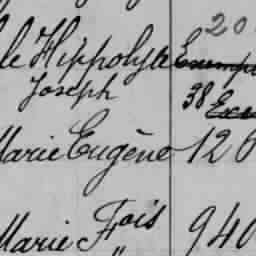 20
le Hippolyte Exemp
Joseph 38 Exe
Marie Eugène 126
Marie Fois 940
"